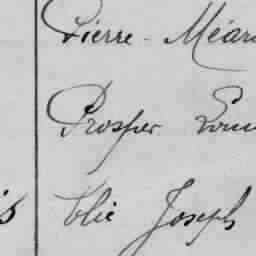 Pierre - Méar
Prosper Loui
s Elie Joseph